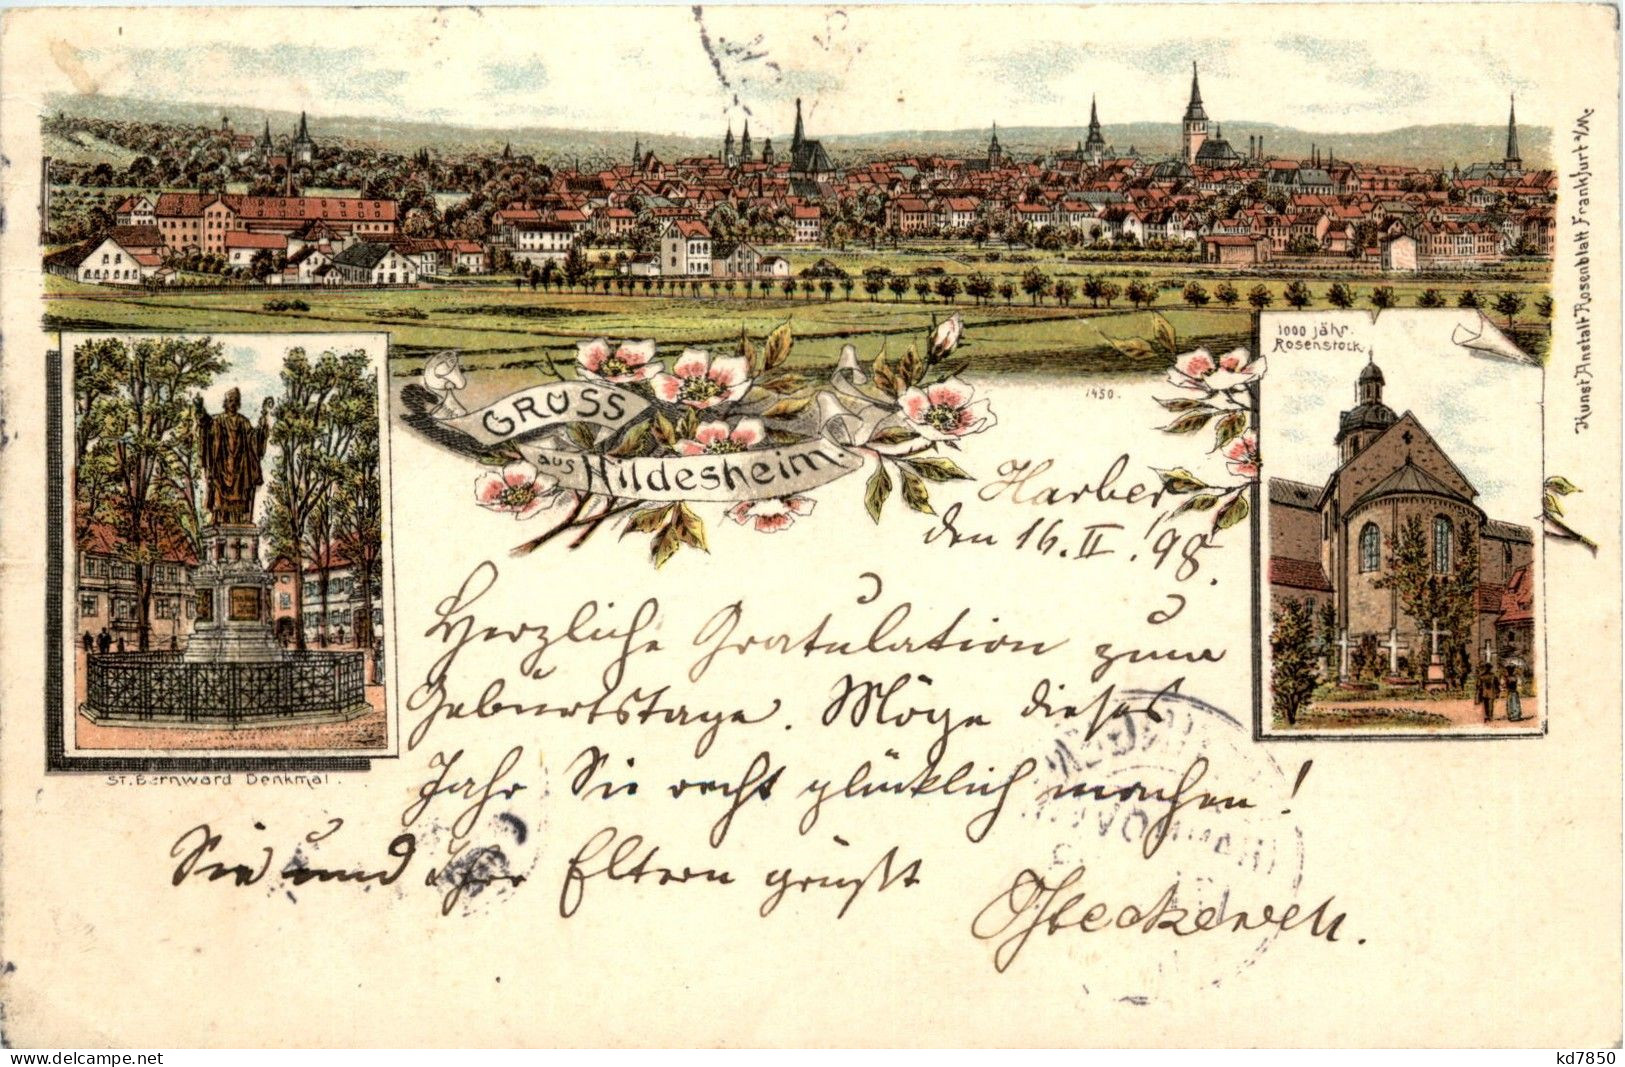 Kunst Anstalt Rosenblatt Frankfurt a/M.
1000 jähr.
Rosenstock
1450.
GRUSS
aus Hildesheim.
St. Bernward Denkmal.
Harber
den 16. II. 98.
Herzliche Gratulation zum
Geburtstage. Möge dieses
Jahr Sie recht glücklich machen!
Sie und Ihre Eltern grüßt
delcampe.net
kd7850